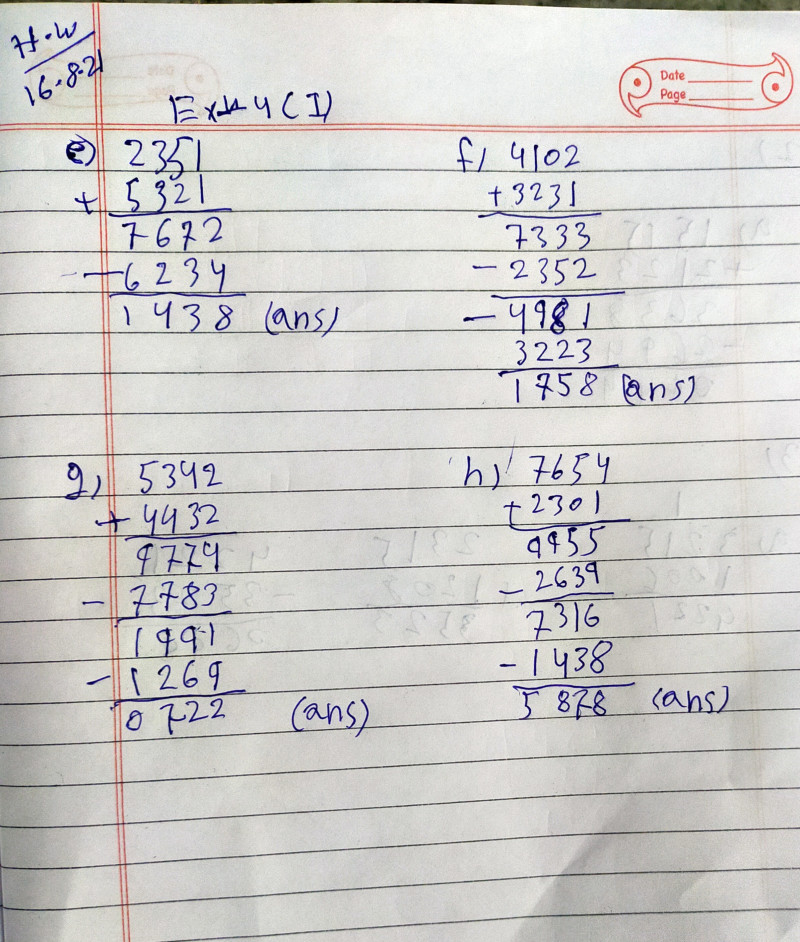 H.W
16.8.21
Date
Page
Ex-4 (I)
e) 2351
+ 5321
7672
- 6234
1438 (ans)
f) 4102
+3231
7333
- 2352
- 4981
3223
1758 (ans)
g) 5342
+ 4432
9774
- 7783
1991
- 1269
0722 (ans)
h) 7654
+2301
9955
- 2639
7316
- 1438
5878 (ans)